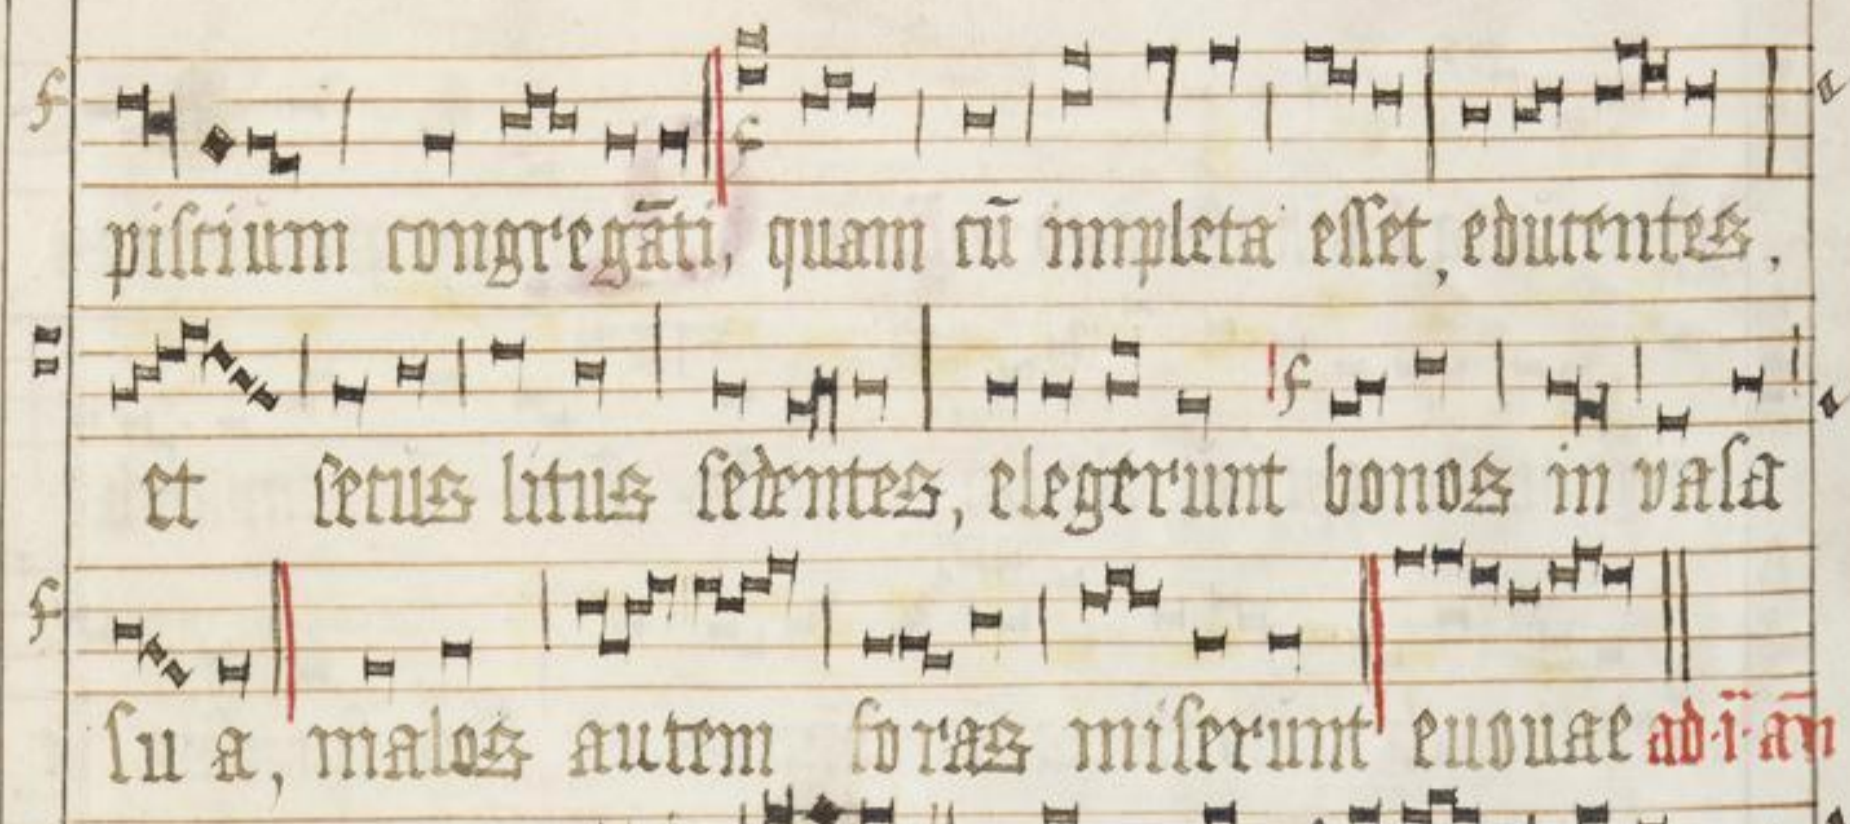 piscium congregāti, quam cū impleta esset, educentes,
et secus litus sedentes, elegerunt bonos in vasa
su a, malos autem foras miserunt euouae ad·i·añ